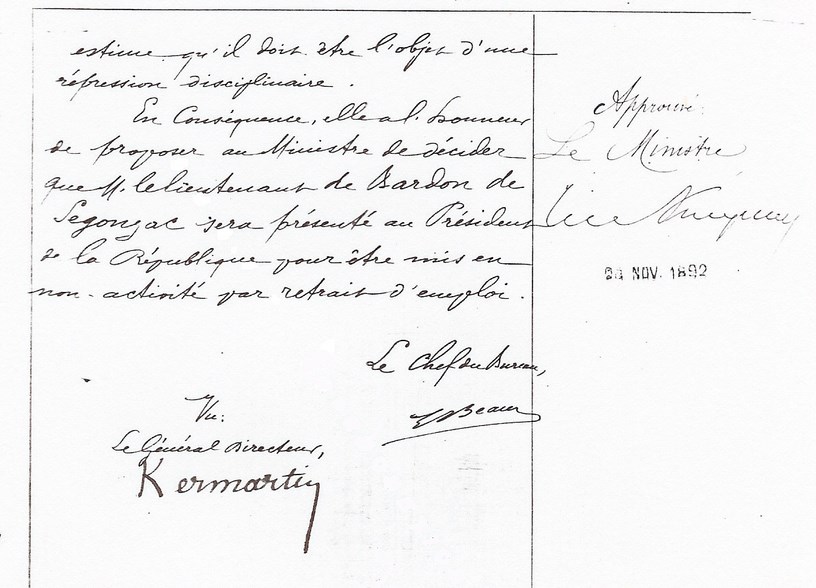 estime qu'il doit être l'objet d'une
répression disciplinaire.
En Conséquence, elle a l'honneur
de proposer au Ministre de décider
que M. le lieutenant de Bardon de
Segonzac sera présenté au Président
de la République pour être mis en
non-activité par retrait d'emploi.
Le Chef du Bureau,
Vu:
Le Général Directeur,
Kermartin
Approuvé
Le Ministre
24 NOV. 1892